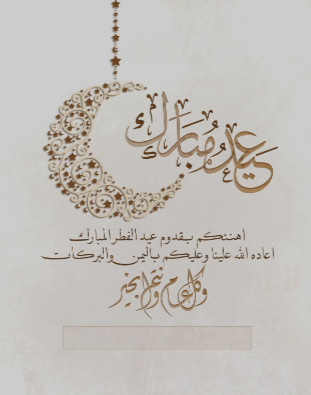 عيد مبارك
أهنئكم بقدوم عيد الفطر المبارك
اعاده الله علينا وعليكم باليمن والبركات
وكل عام وانتم بخير